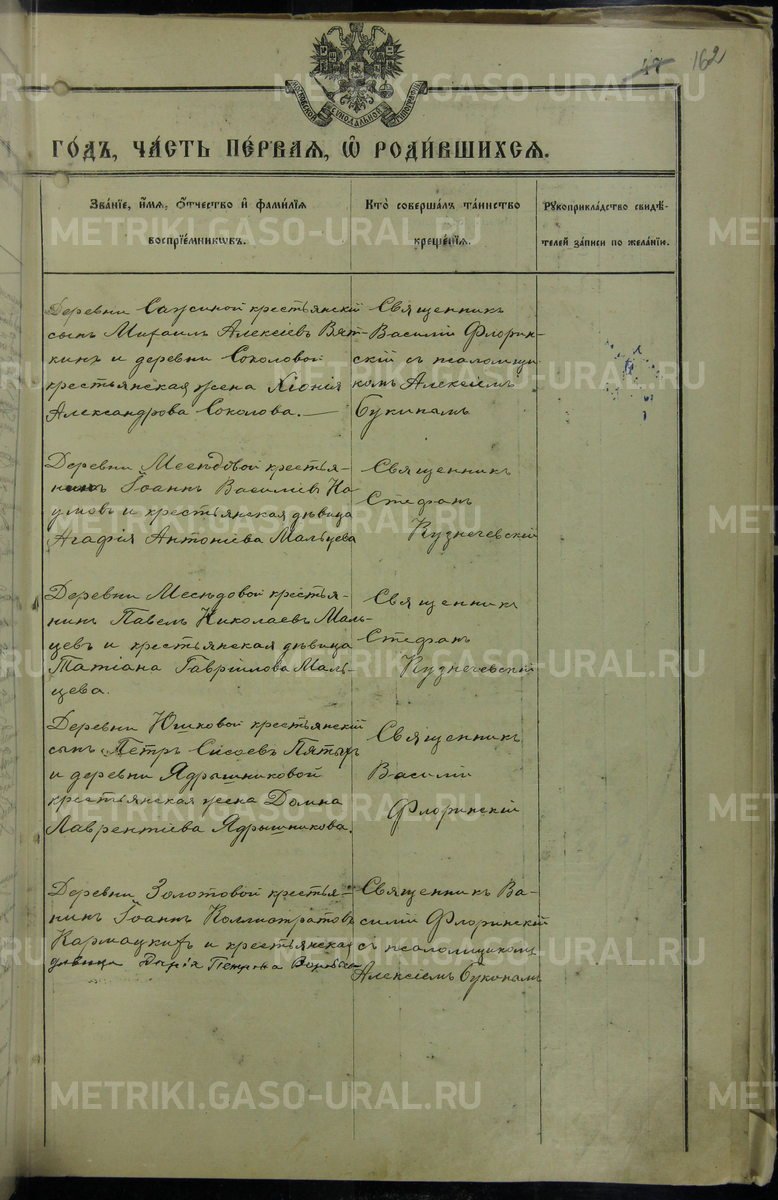 162
47
МОСКОВСКОЙ СѴНОДАЛЬНОЙ ТИПОГРАФІИ
ГО́ДЪ, ЧА́СТЬ ПЕ́РВАЯ, Ѽ РОДИ́ВШИХСЯ.
Зва́нїе, и҆́мѧ, ѻ҆́тчество и҆ фами́лїѧ
воспрїе́мникѡвъ.
Кто̀ соверша́лъ та́инство
креще́нїѧ.
Рꙋкоприкла́дство свидѣ́-
телей за́писи по жела́нїю.
Деревни Сажиной крестьянскій
сынъ Михаилъ Алексіевъ Вят-
кинъ и деревни Соколовой
крестьянская жена Хіонія
Александрова Соколова.
Священникъ
Василій Флорин-
скій съ псаломщи-
комъ Алексіемъ
Букинымъ
Деревни Месѣдовой крестья-
нинъ Іоаннъ Василіевъ На-
умовъ и крестьянская дѣвица
Агафія Антоніева Мальцева
Священникъ
Стефанъ
Кузнечевскій
Деревни Месѣдовой крестья-
нинъ Павелъ Николаевъ Маль-
цевъ и крестьянская дѣвица
Татіана Гавріилова Маль-
цева.
Священникъ
Стефанъ
Кузнечевскій
Деревни Юшковой крестьянскій
сынъ Петръ Сисоевъ
и деревни Ядрышниковой
крестьянская жена Домна
Лаврентіева Ядрышникова.
Священникъ
Василій
Флоринскій
Деревни Золотовой крестья-
нинъ Іоаннъ Каллистратовъ
Кармацкихъ и крестьянская
дѣвица Дарія Петрова
Священникъ Ва-
силій Флоринскій
съ псаломщикомъ
Алексіемъ Букинымъ
METRIKI.GASO-URAL.RU